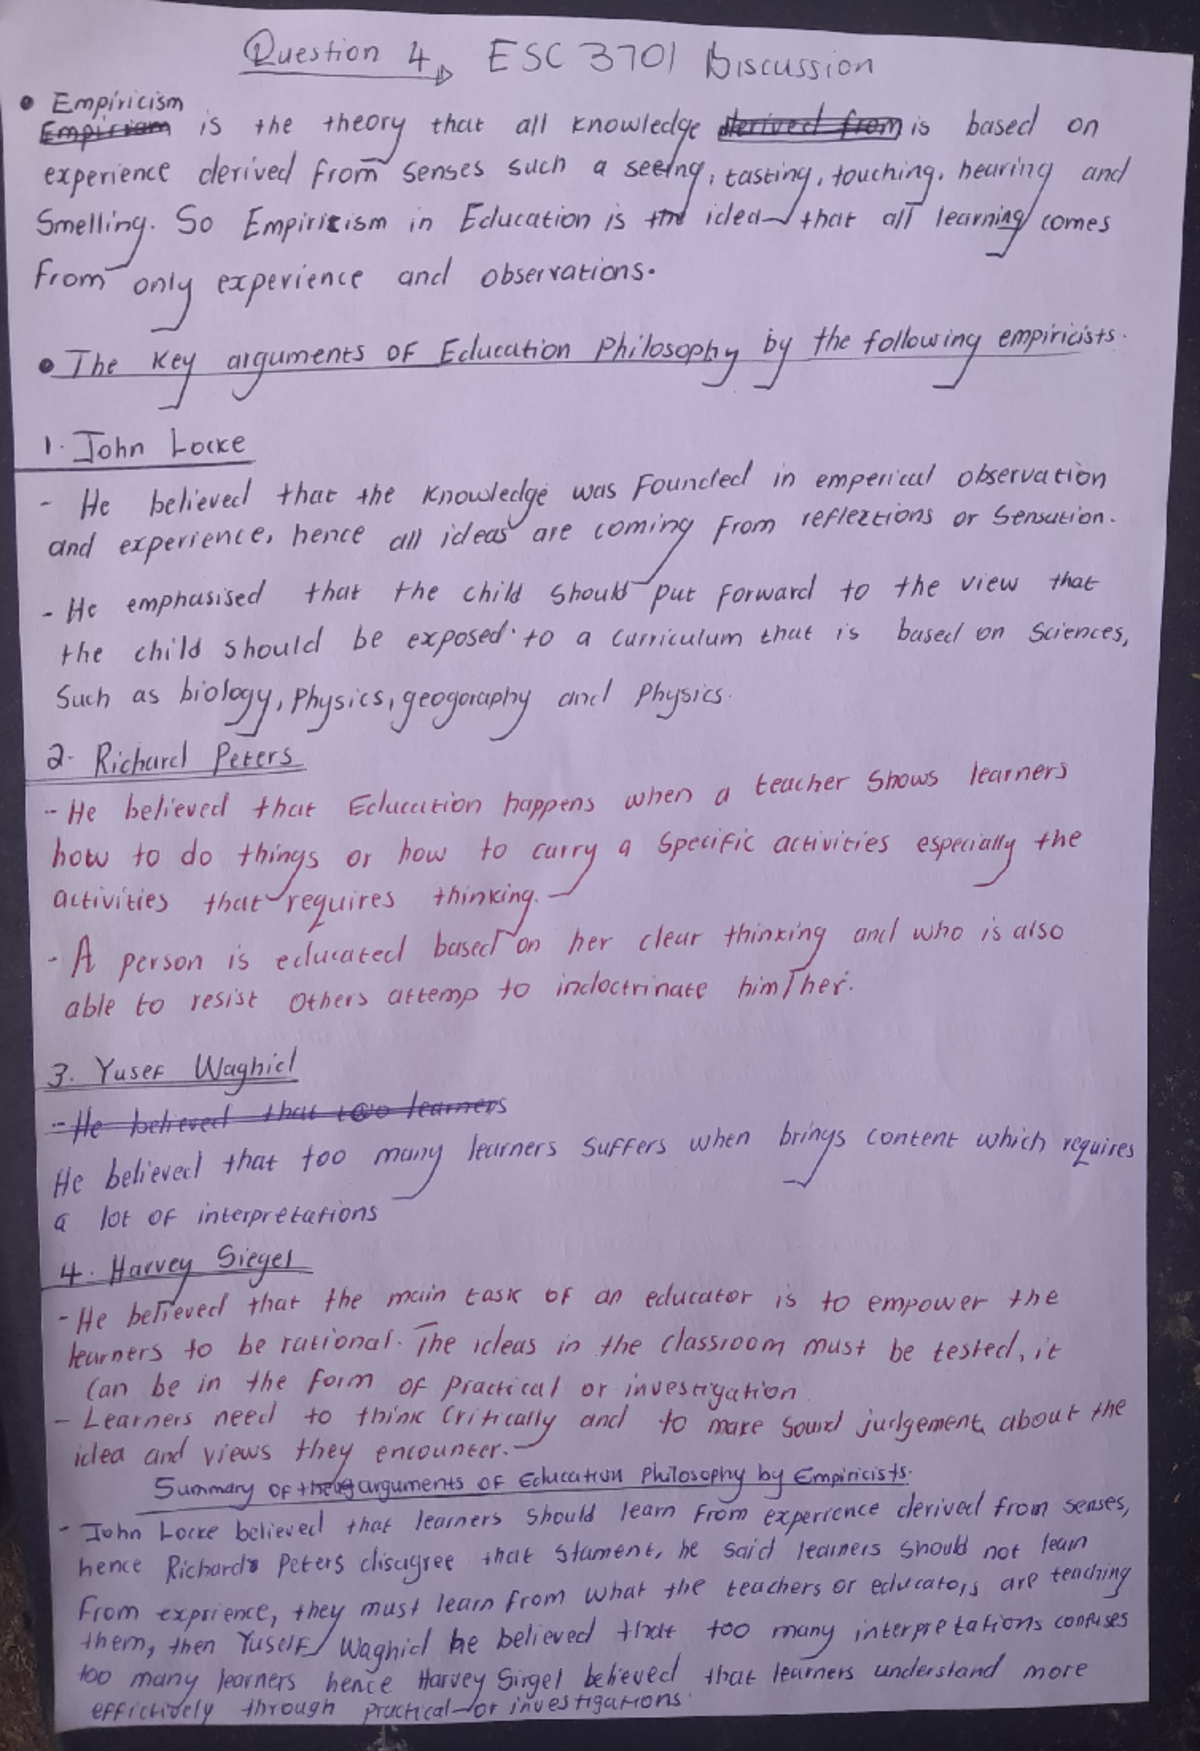 Question 4 ESC 3701 Discussion
• Empiricism
Empirism is the theory that all knowledge derived from is based on
experience derived from senses such a seeing, tasting, touching, hearing and
Smelling. So Empiricism in Education is the idea that all learning comes
from only experience and observations.
• The key arguments of Education Philosophy by the following empiricists.
1. John Locke
- He believed that the knowledge was founded in emperical observation
and experience, hence all ideas are coming from reflections or sensation.
- He emphasised that the child should put forward to the view that
the child should be exposed to a curriculum that is based on Sciences,
Such as biology, Physics, geogoraphy and Physics.
2. Richard Peters
- He believed that Education happens when a teacher shows learners
how to do things or how to carry a specific activities especially the
activities that requires thinking.
- A person is educated based on her clear thinking and who is also
able to resist others attemp to indoctrinate him/her.
3. Yusef Waghid
- He believed that too learners
He believed that too many learners suffers when brings content which requires
a lot of interpretations
4. Harvey Siegel
- He believed that the main task of an educator is to empower the
learners to be rational. The ideas in the classroom must be tested, it
can be in the form of practical or investigation
- Learners need to think critically and to make sound judgement about the
idea and views they encounter.
Summary of the arguments of Education Philosophy by Empiricists.
- John Locke believed that learners should learn from experience derived from senses,
hence Richards Peters disagree that stament, he said learners should not learn
From exprience, they must learn from what the teachers or educators are teaching
them, then Yuself Waghid he believed that too many interpretations confuses
too many learners hence Harvey Sirgel believed that learners understand more
effictively through practical or investigations.